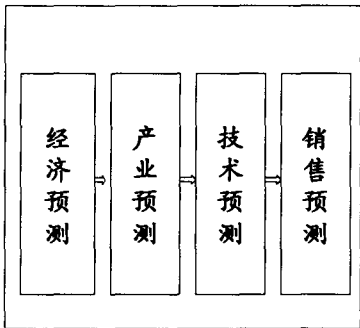 经济预测
产业预测
技术预测
销售预测